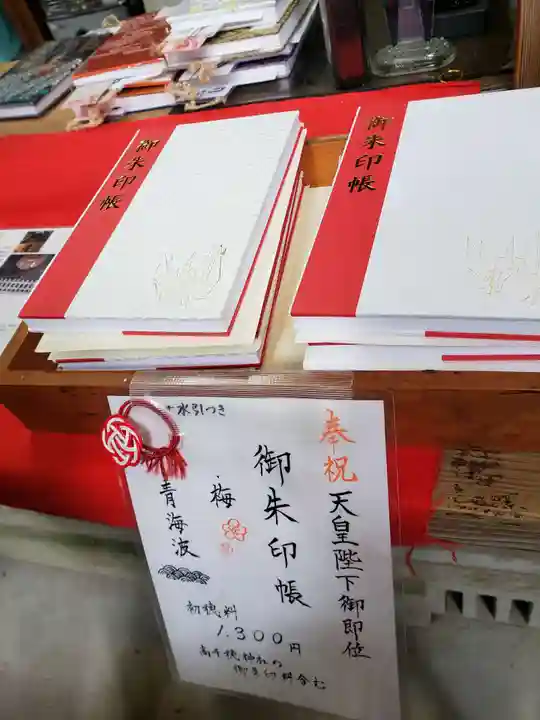 御朱印帳
御朱印帳
水引つき
奉祝
天皇陛下御即位
御朱印帳
・梅
青海波
初穂料
1,300円
高千穂神社の
御朱印料含む